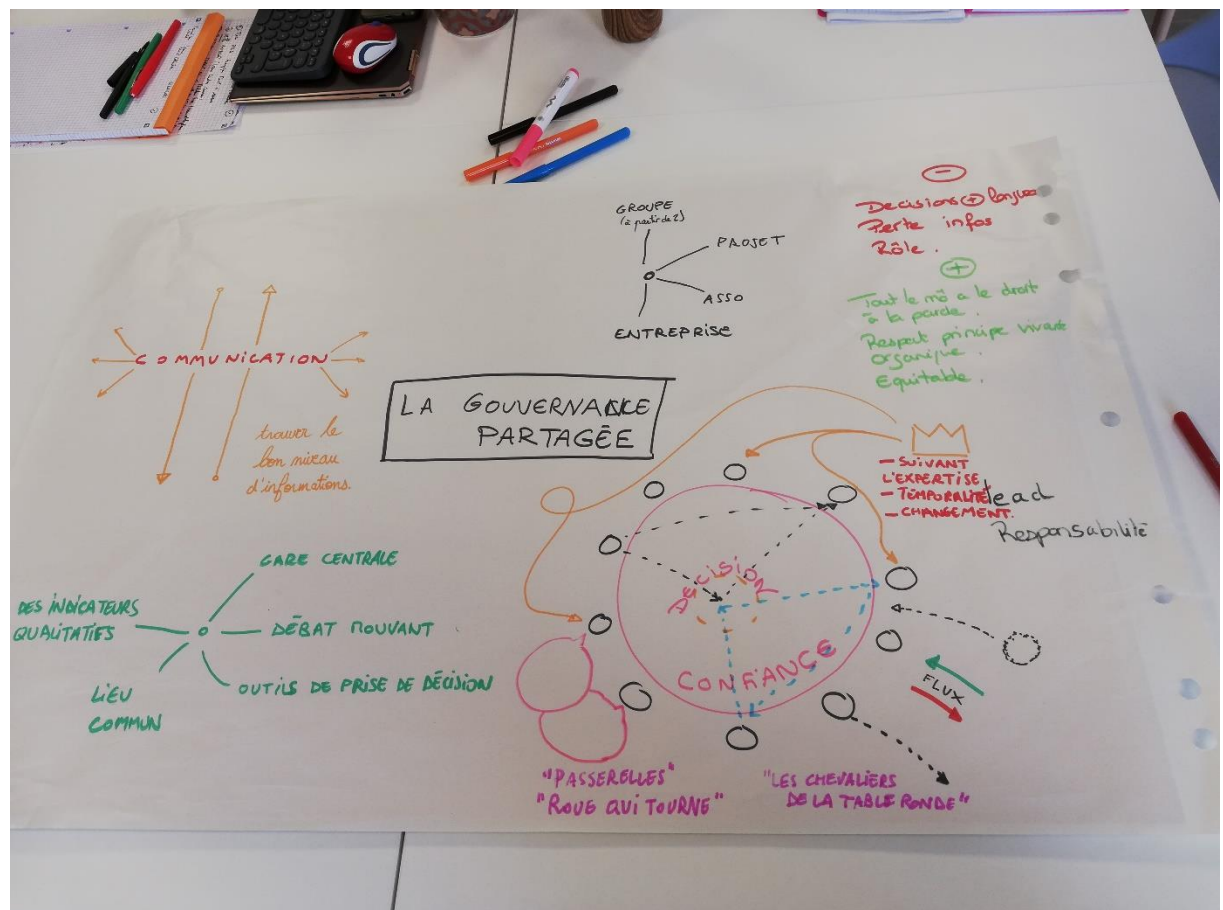 GROUPE
(à partir de 2)
PROJET
ASSO
ENTREPRISE
-
Decisions + longues
Perte infos
Rôle.
+
Tout le mô a le droit
à la parole.
Respect principe vivant
organique.
Equitable.
COMMUNICATION
trouver le
bon niveau
d'informations.
LA GOUVERNANCE
PARTAGÉE
- SUIVANT
L'EXPERTISE
- TEMPORALITÉ
- CHANGEMENT.
lead
Responsabilité
Décision
CONFIANCE
FLUX
GARE CENTRALE
DES INDICATEURS
QUALITATIFS
DÉBAT MOUVANT
OUTILS DE PRISE DE DÉCISION
LIEU
COMMUN
"PASSERELLES"
"ROUE QUI TOURNE"
"LES CHEVALIERS
DE LA TABLE RONDE"